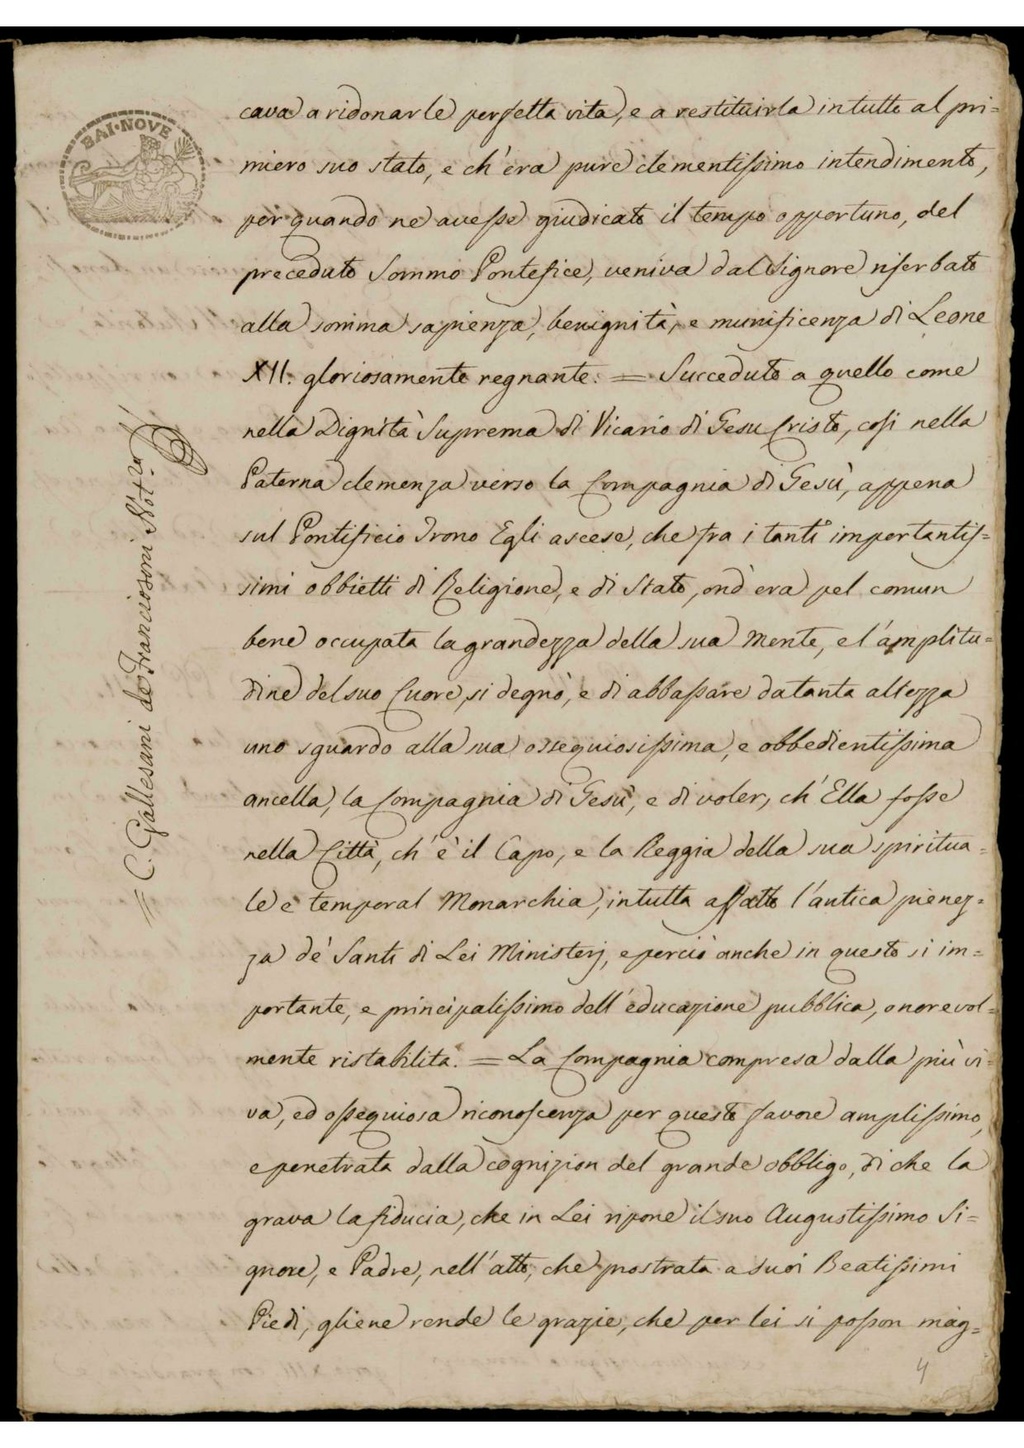 BAI·NOVE
cava a ridonarle perfetta vita, e a restituirla in tutto al pri=
miero suo stato, e ch'era pure clementissimo intendimento,
per quando ne avesse giudicato il tempo opportuno, del
preceduto Sommo Pontefice, veniva dal Signore riserbato
alla somma sapienza, benignità, e munificenza di Leone
XII. gloriosamente regnante. = Succeduto a quello come
nella Dignità Suprema di Vicario di Gesu Cristo, così nella
Paterna clemenza verso la Compagnia di Gesù, appena
sul Pontificio Trono Egli ascese, che fra i tanti importantis=
simi obbietti di Religione, e di Stato, ond'era pel comun
bene occupata la grandezza della sua Mente, e l'amplitu=
dine del suo Cuore, si degnò, e di abbassare da tanta altezza
uno sguardo alla sua ossequiosissima, e obbedientissima
ancella, la Compagnia di Gesù, e di voler, ch'Ella fosse
nella Città, ch'è il Capo, e la Reggia della sua spiritua=
le e temporal Monarchia, in tutta affatto l'antica pienez=
za de' Santi di Lei Ministerj, e perciò anche in questo si im=
portante, e principalissimo dell'educazione pubblica, onorevol=
mente ristabilita. = La Compagnia compresa dalla più vi=
va, ed ossequiosa riconoscenza per questo favore amplissimo,
e penetrata dalla cognizion del grande obbligo, di che la
grava la fiducia, che in Lei ripone il suo Augustissimo Si=
gnore, e Padre, nell'atto, che prostrata a suoi Beatissimi
Piedi, gliene rende le grazie, che per lei si posson mag=
= C. Gallesani de Franciosoni Not.
4